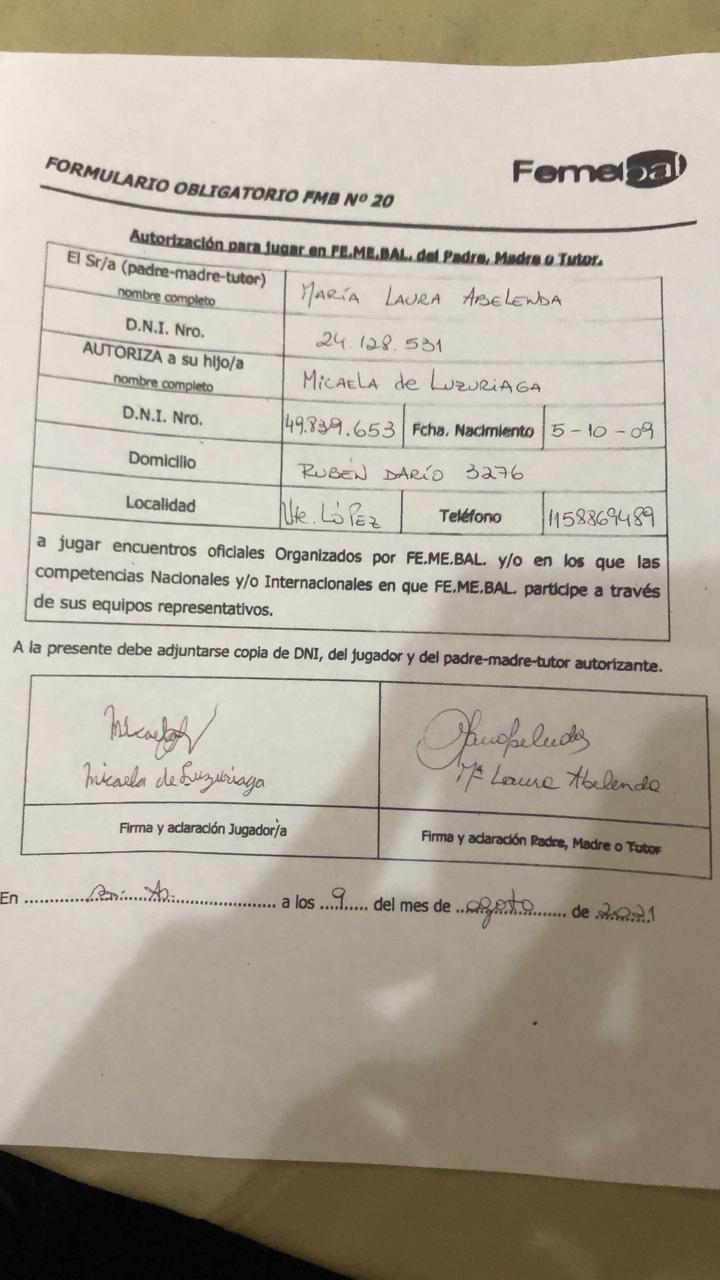 FORMULARIO OBLIGATORIO FMB Nº 20
Femebal
Autorización para jugar en FE.ME.BAL. del Padre, Madre o Tutor.
El Sr/a (padre-madre-tutor)
nombre completo
MARÍA LAURA ABELENDA
D.N.I. Nro.
24.128.531
AUTORIZA a su hijo/a
nombre completo
MICAELA de LUZURIAGA
D.N.I. Nro.
49.839.653
Fcha. Nacimiento
5-10-09
Domicilio
RUBÉN DARÍO 3276
Localidad
Vte. LÓPEZ
Teléfono
1158869489
a jugar encuentros oficiales Organizados por FE.ME.BAL. y/o en los que las
competencias Nacionales y/o Internacionales en que FE.ME.BAL. participe a través
de sus equipos representativos.
A la presente debe adjuntarse copia de DNI, del jugador y del padre-madre-tutor autorizante.
Micaela de Luzuriaga
Mª Laura Abelenda
Firma y aclaración Jugador/a
Firma y aclaración Padre, Madre o Tutor
En a los 9 del mes de agosto de 2021